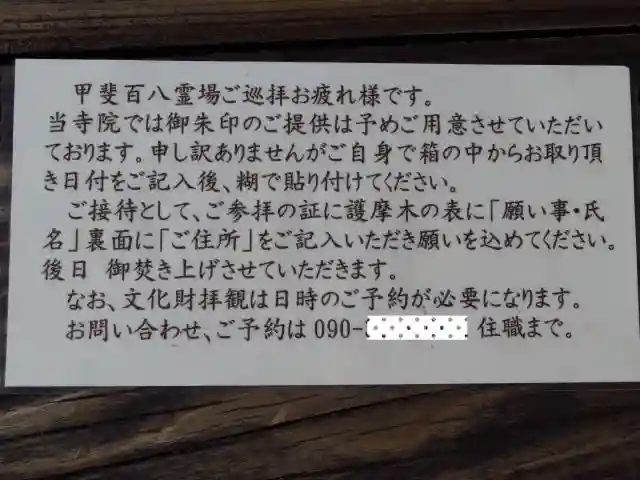 甲斐百八霊場ご巡拝お疲れ様です。
当寺院では御朱印のご提供は予めご用意させていただい
ております。申し訳ありませんがご自身で箱の中からお取り頂
き日付をご記入後、糊で貼り付けてください。
ご接待として、ご参拝の証に護摩木の表に「願い事・氏
名」裏面に「ご住所」をご記入いただき願いを込めてください。
後日 御焚き上げさせていただきます。
なお、文化財拝観は日時のご予約が必要になります。
お問い合わせ、ご予約は 090- 住職まで。